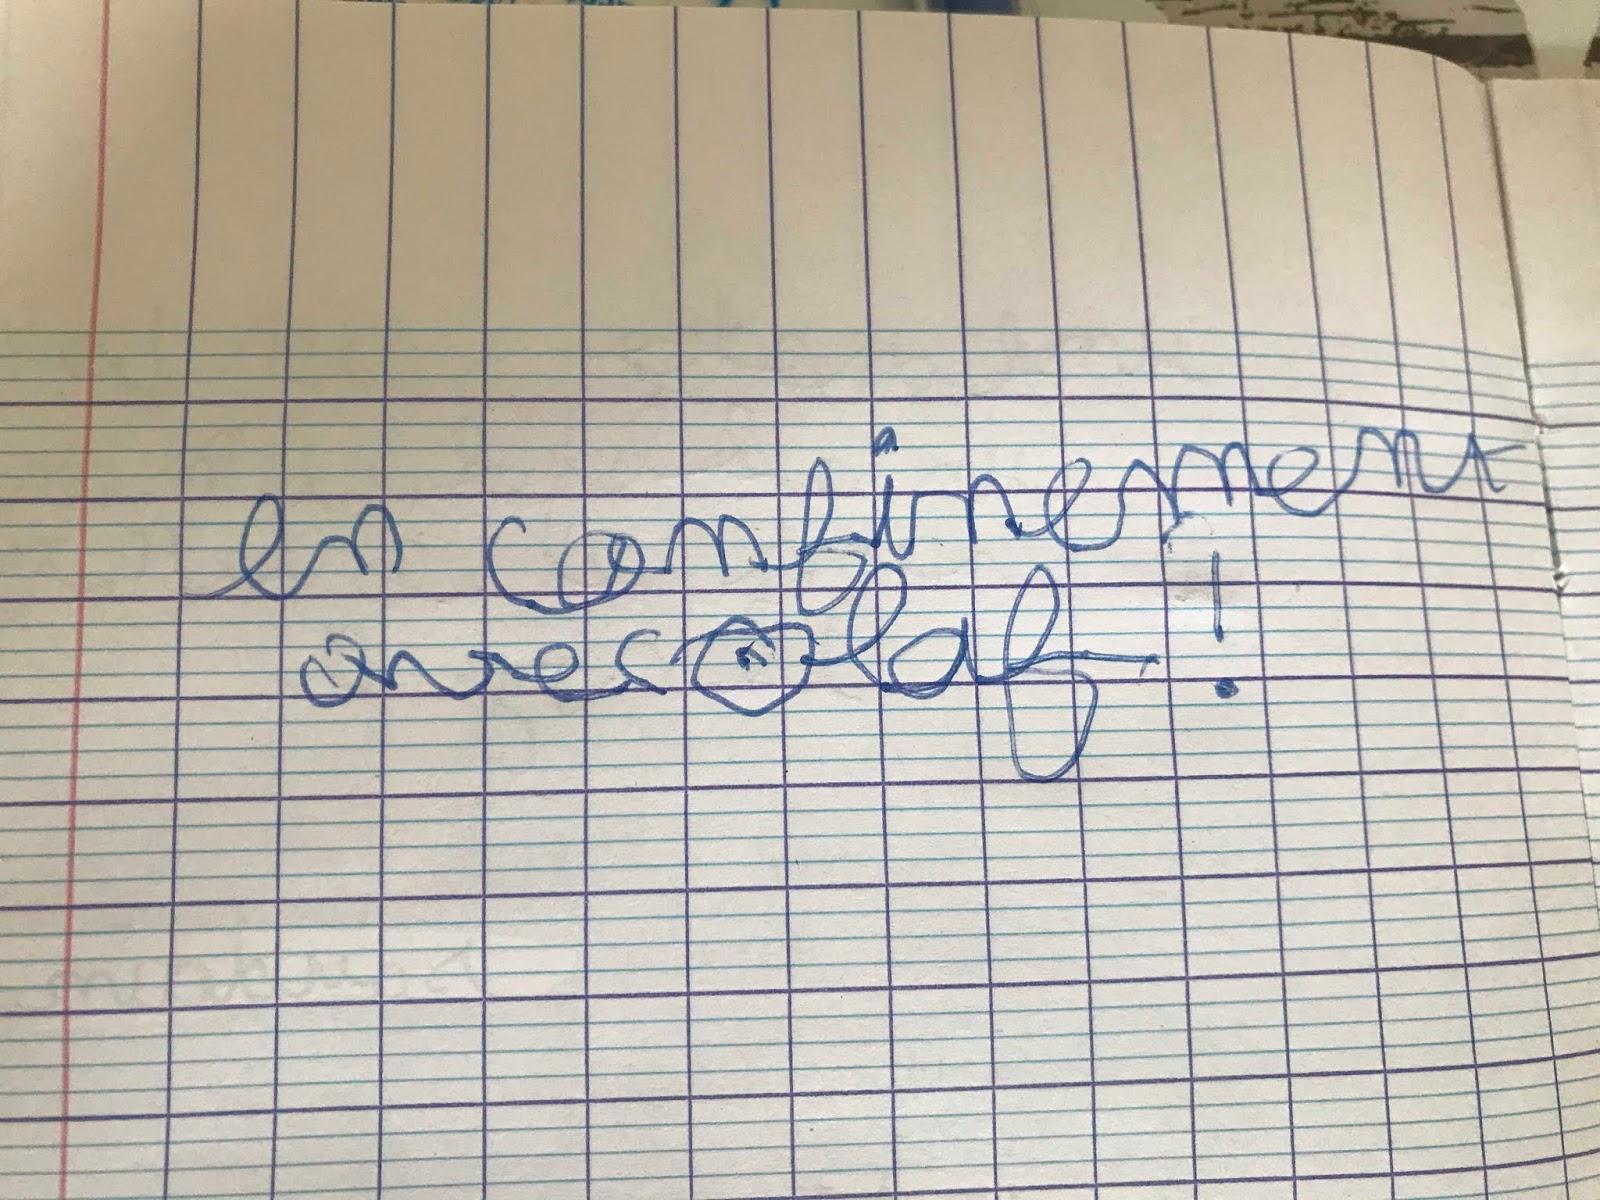 en confinement
avec Olaf !